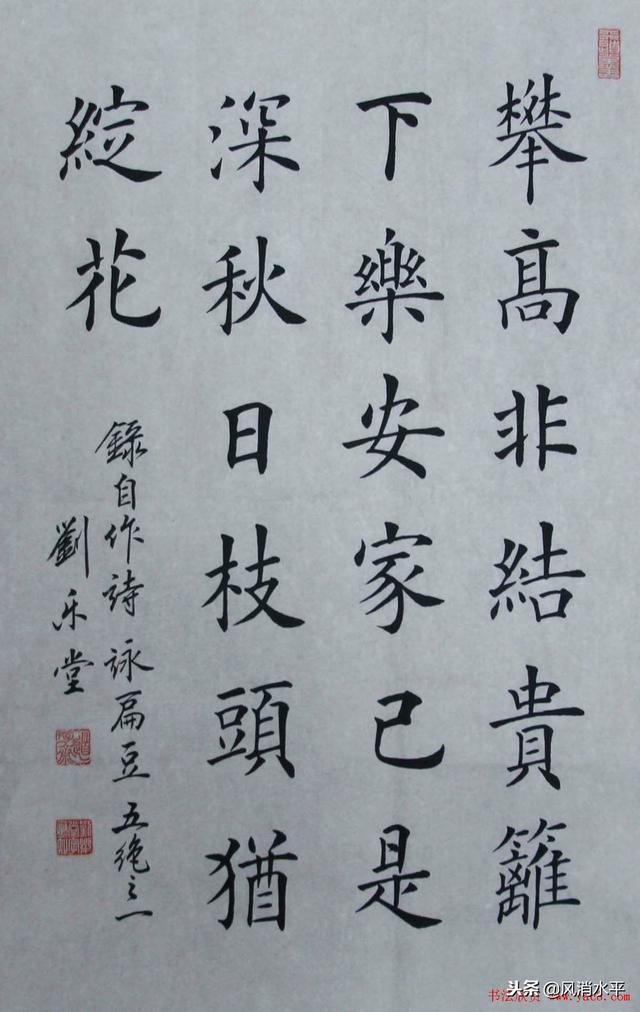 攀高非結貴籬
下樂安家已是
深秋日枝頭猶
綻花
錄自作詩詠扁豆五絶之一
劉乐堂
头条@风消水平
书法欣赏 www.yac8.com